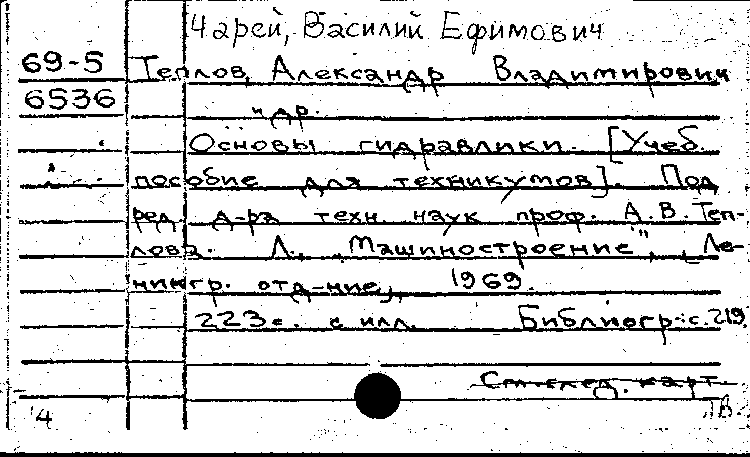 Чарей, Василий Ефимович
69-5 Теплов, Александр Владимирович
6536 и др.
Основы гидравлики. [Учеб.
пособие для техникумов]. Под
ред. д-ра техн. наук проф. А.В. Теп-
лова. Л., "Машиностроение", [Ле-
нингр. отд-ние], 1969.
223 с. с илл. Библиогр.: с. 219.
См. след. карт.
4